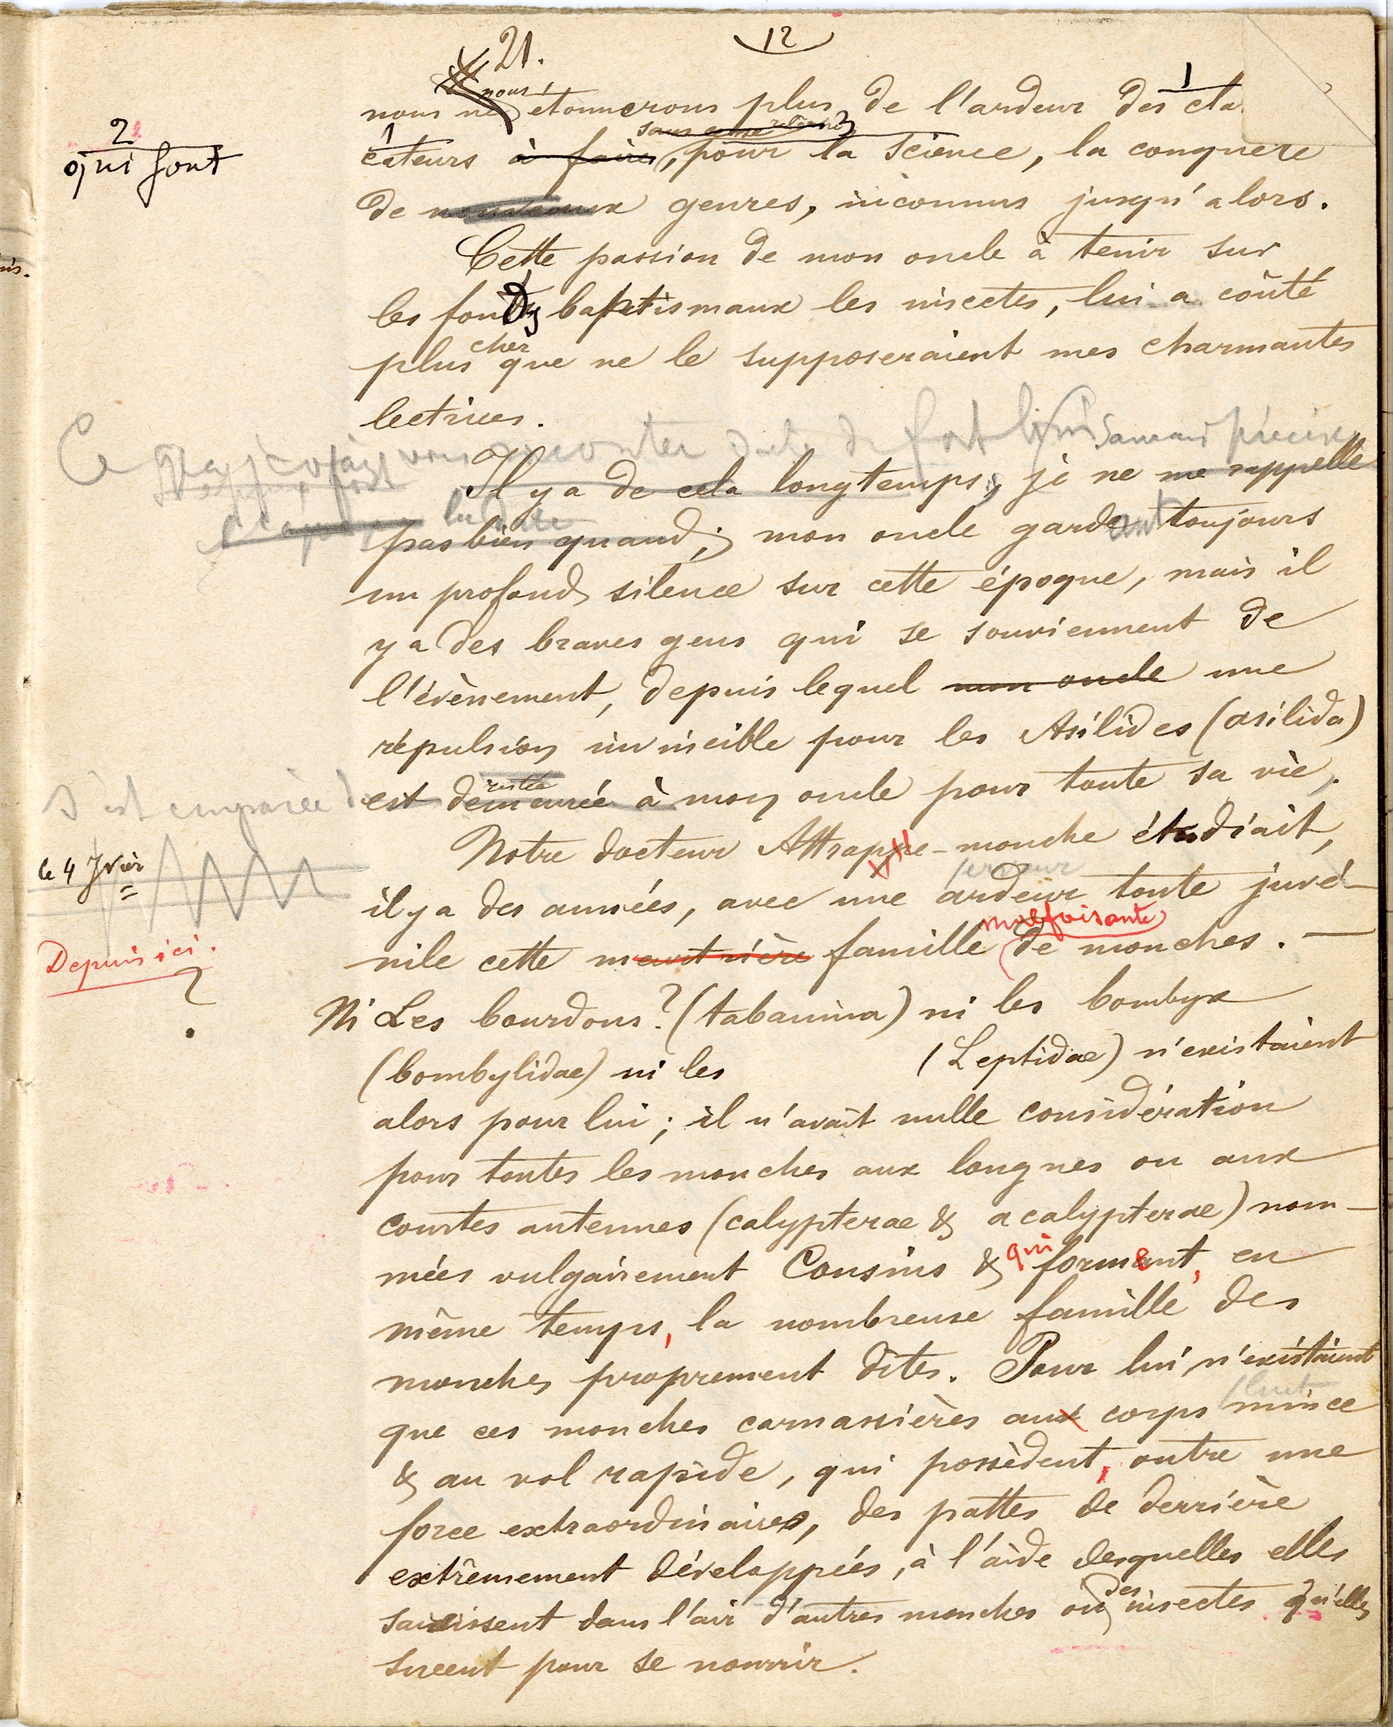 12
21.
nous ne nous étonnerons plus de l'ardeur des 1 cla
2
qui font
cateurs à faire, pour la science, la conquete
sans cesse
de nouveaux genres, inconnus jusqu'alors.
Cette passion de mon oncle à tenir sur
les fonds baptismaux les insectes, lui a coûté
plus cher que ne le supposeraient mes charmantes
lectrices.
Il y a de cela longtemps, je ne me rappelle
pas bien quand; mon oncle gardant toujours
un profond silence sur cette époque, mais il
y a des braves gens qui se souviennent de
l'évènement, depuis lequel mon oncle une
répulsion invincible pour les Asilides (asilida)
s'est emparée de
est demeurée restée à mon oncle pour toute sa vie.
Notre docteur Attrappe-mouche étudiait,
le 4 Jvier
il y a des années, avec une ardeur toute juvé-
ferveur
Depuis ici.
?
nile cette meurtrière famille malfaisante de mouches. —
Ni Les bourdons? (tabanina) ni les bombyx
(bombylidae) ni les (Leptidae) n'existaient
alors pour lui; il n'avait nulle considération
pour toutes les mouches aux longues ou aux
courtes antennes (calypterae & acalypterae) nom-
mées vulgairement Cousins & qui forment, en
même temps, la nombreuse famille des
mouches proprement dites. Pour lui, n'existaient
que ces mouches carnassières aux corps mince
fluet
& au vol rapide, qui possèdent, outre une
force extraordinaire, des pattes de derrière
extrêmement développées, à l'aide desquelles elles
saisissent dans l'air d'autres mouches ou des insectes qu'elles
sucent pour se nourrir.